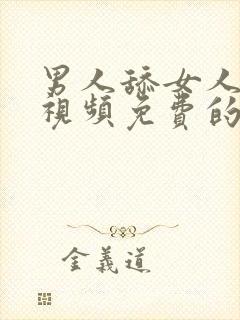 男人舔女人
視頻免費的
金義道